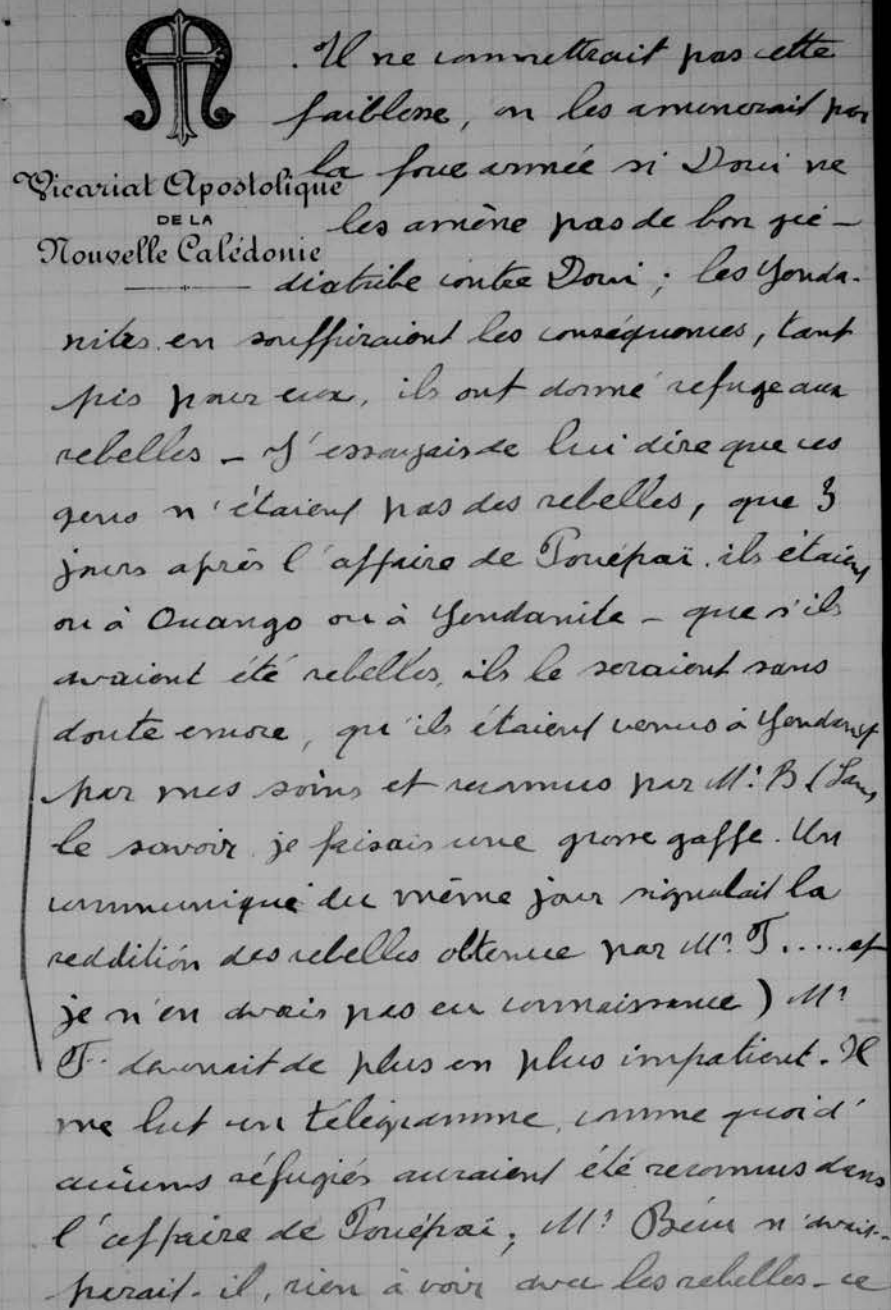 Vicariat Apostolique
DE LA
Nouvelle Calédonie
. Il ne commettrait pas cette
faiblesse, on les amènerait par
la force armée si Doui ne
les amène pas de bon gré –
diatribe contre Doui ; les Yenda-
nites en souffriraient les conséquences, tant
pis pour eux, ils ont donné refuge aux
rebelles – J'essayais de lui dire que ces
gens n'étaient pas des rebelles, que 3
jours après l'affaire de Pouépaï ils étaient
ou à Ouango ou à Yendanite – que s'ils
avaient été rebelles, ils le seraient sans
doute encore, qu'ils étaient venus à Yendanit
par mes soins et reconnus par Mr B (Sans
le savoir je faisais une grosse gaffe. Un
communiqué du même jour signalait la
reddition des rebelles obtenue par Mr T..... et
je n'en avais pas eu connaissance) Mr
T. devenait de plus en plus impatient. Il
me lut un télégramme, comme quoi d'
aucuns réfugiés auraient été reconnus dans
l'affaire de Pouépaï, Mr n'avait-
il, rien à voir avec les rebelles – ce